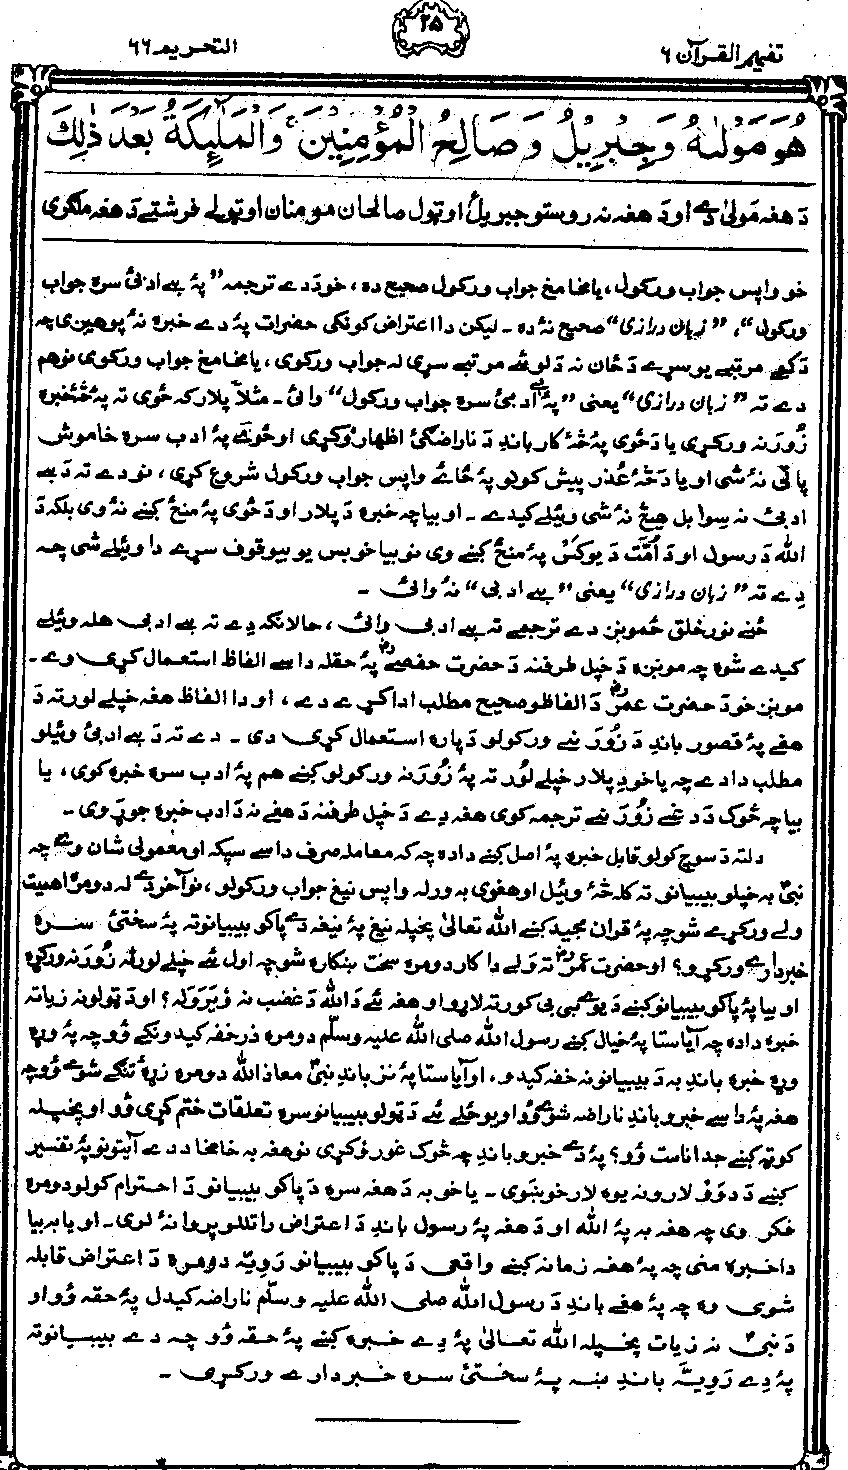 تفهیم القرآن ۶
۲۵
التحریم ۶۶
هُوَ مَوْلٰىهُ وَجِبْرِيْلُ وَصَالِحُ الْمُؤْمِنِيْنَ ۚ وَالْمَلٰٓئِكَةُ بَعْدَ ذٰلِكَ
دَ هغه مَولیٰ دے او دَ هغه نه روستو جبریلؑ او ټول صالحان مومنان او ټولے فرشتے دَ هغه ملګری
خو واپس جواب ورکول، یا مخامخ جواب ورکول صحیح ده، خو دَ دے ترجمه "پهٔ بے ادبئ سره جواب
ورکول"، "زبان درازی" صحیح نهٔ ده ۔ لیکن دا اعتراض کونکی حضرات پهٔ دے خبره نهٔ پوهیږی چه
دَ کمے مرتبے یو سړے دَ ځان نه دَ لوئے مرتبے سړی له جواب ورکوی، یا مخامخ جواب ورکوی نو هم
دے ته "زبان درازی" یعنی "پهٔ بے ادبئ سره جواب ورکول" وائی ۔ مثلاً پلار که ځوی ته پهٔ څهٔ خبره
زَورَنه ورکړی یا دَ ځوی پهٔ څهٔ کار باندِ دَ ناراضګئ اظهار وکړی او ځوئے پهٔ ادب سره خاموش
پاتی نهٔ شی او یا دَ څهٔ عُذر پیش کولو پهٔ ځائے واپس جواب ورکول شروع کړی، نو دے ته دَ بے
ادبئ نه سوا بل هیڅ نهٔ شی وئیلے کیدے ۔ او بیا چه خبره دَ پلار او دَ ځوی پهٔ منځ کښے نهٔ وی بلکه دَ
الله دَ رسول او دَ اُمّت دَ یو کس پهٔ منځ کښے وی نو بیا خو بس یو بیوقوف سړے دا وئیلے شی چه
دِے ته "زبان درازی" یعنی "بے ادبی" نهٔ وائی ۔
ځنے نور خلق ځمونږ دے ترجمے ته بے ادبی وائی، حالانکه دِے ته بے ادبی هله وئیلے
کیدے شوه چه مونږه دَ خپل طرفنه دَ حضرت حفصےؓ پهٔ حقله داسے الفاظ استعمال کړی وے ۔
مونږ خو دَ حضرت عمرؓ دَ الفاظو صحیح مطلب ادا کړے دے، او دا الفاظ هغه خپلے لور ته دَ
هغے پهٔ قصور باندِ دَ زَورَنے ورکولو دَپاره استعمال کړی دی ۔ دے ته دَ بے ادبئ وئیلو
مطلب دا دے چه یا خو دِ پلار خپلے لور ته پهٔ زَورَنه ورکولو کښے هم پهٔ ادب سره خبره کوی، یا
بیا چه څوک دَ دغے زَورَنے ترجمه کوی هغه دِے دَ خپل طرفنه دَ هغے نه دَ ادب خبره جوړه وی ۔
دلته دَ سوچ کولو قابل خبره پهٔ اصل کښے دا ده چه که معامله صرف داسے سپکه او معمولی شان وے چه
نبیؐ به خپلو بیبیانو ته کله څهٔ وئیل او هغوی به ورله واپس نیغ جواب ورکولو، نو آخر دے له دومره اهمیت
ولے ورکړے شو چه پهٔ قران مجید کښے الله تعالیٰ پخپله نیغ پهٔ نیغه دے پاکو بیبیانو ته پهٔ سختئ سره
خبردارے ورکړو؟ او حضرت عمرؓ ته ولے دا کار دومره سخت ښکاره شو چه اول ئے خپلے لور له زَورَنه ورکړه
او بیا پهٔ پاکو بیبیانو کښے دَ یوے بی بی کور ته لاړو او هغه ئے دَ الله دَ غضب نه وَیَرَوَله؟ او دَ ټولو نه زیاته
خبره دا ده چه آیا ستا پهٔ خیال کښے رسول الله صلی الله علیه وسلّم دومره ذر خفه کیدونکے وُو چه پهٔ وړه
وړه خبره باندِ به دَ بیبیانو نه خفه کیدو، او آیا ستا پهٔ نز باندِ نبیؐ معاذ الله دومره زړهٔ تنګے شوے وُو چه
هغه پهٔ داسے خبرو باندِ ناراضه شوے وُو او یو ځلے ئے دَ ټولو بیبیانو سره تعلقات ختم کړی وُو او پخپله
کوټه کښے جدا ناست وُو؟ پهٔ دے خبرو باندِ چه څوک غور وُکړی نو هغه به خامخا دَ دے آیتونو پهٔ تفسیر
کښے دَ دوَو لارو نه یوه لار خوښوی ۔ یا خو به دَ هغه سره دَ پاکو بیبیانو دَ احترام کولو دومره
فکر وی چه هغه به پهٔ الله او دَ هغه پهٔ رسول باندِ دَ اعتراض راتللو پروا نهٔ لری ۔ او یا به بیا
دا خبره منی چه پهٔ هغه زمانه کښے واقعی دَ پاکو بیبیانو رَویّه دومره دَ اعتراض قابله
شوی وه چه پهٔ هغے باندِ دَ رسول الله صلی الله علیه وسلّم ناراضه کیدل پهٔ حقه وُو او
دَ نبیؐ نه زیات پخپله الله تعالیٰ پهٔ دِے خبره کښے پهٔ حقه وُو چه دے بیبیانو ته
پهٔ دِے رَویّه باندِ ښه پهٔ سختئ سره خبردارے ورکړی ۔